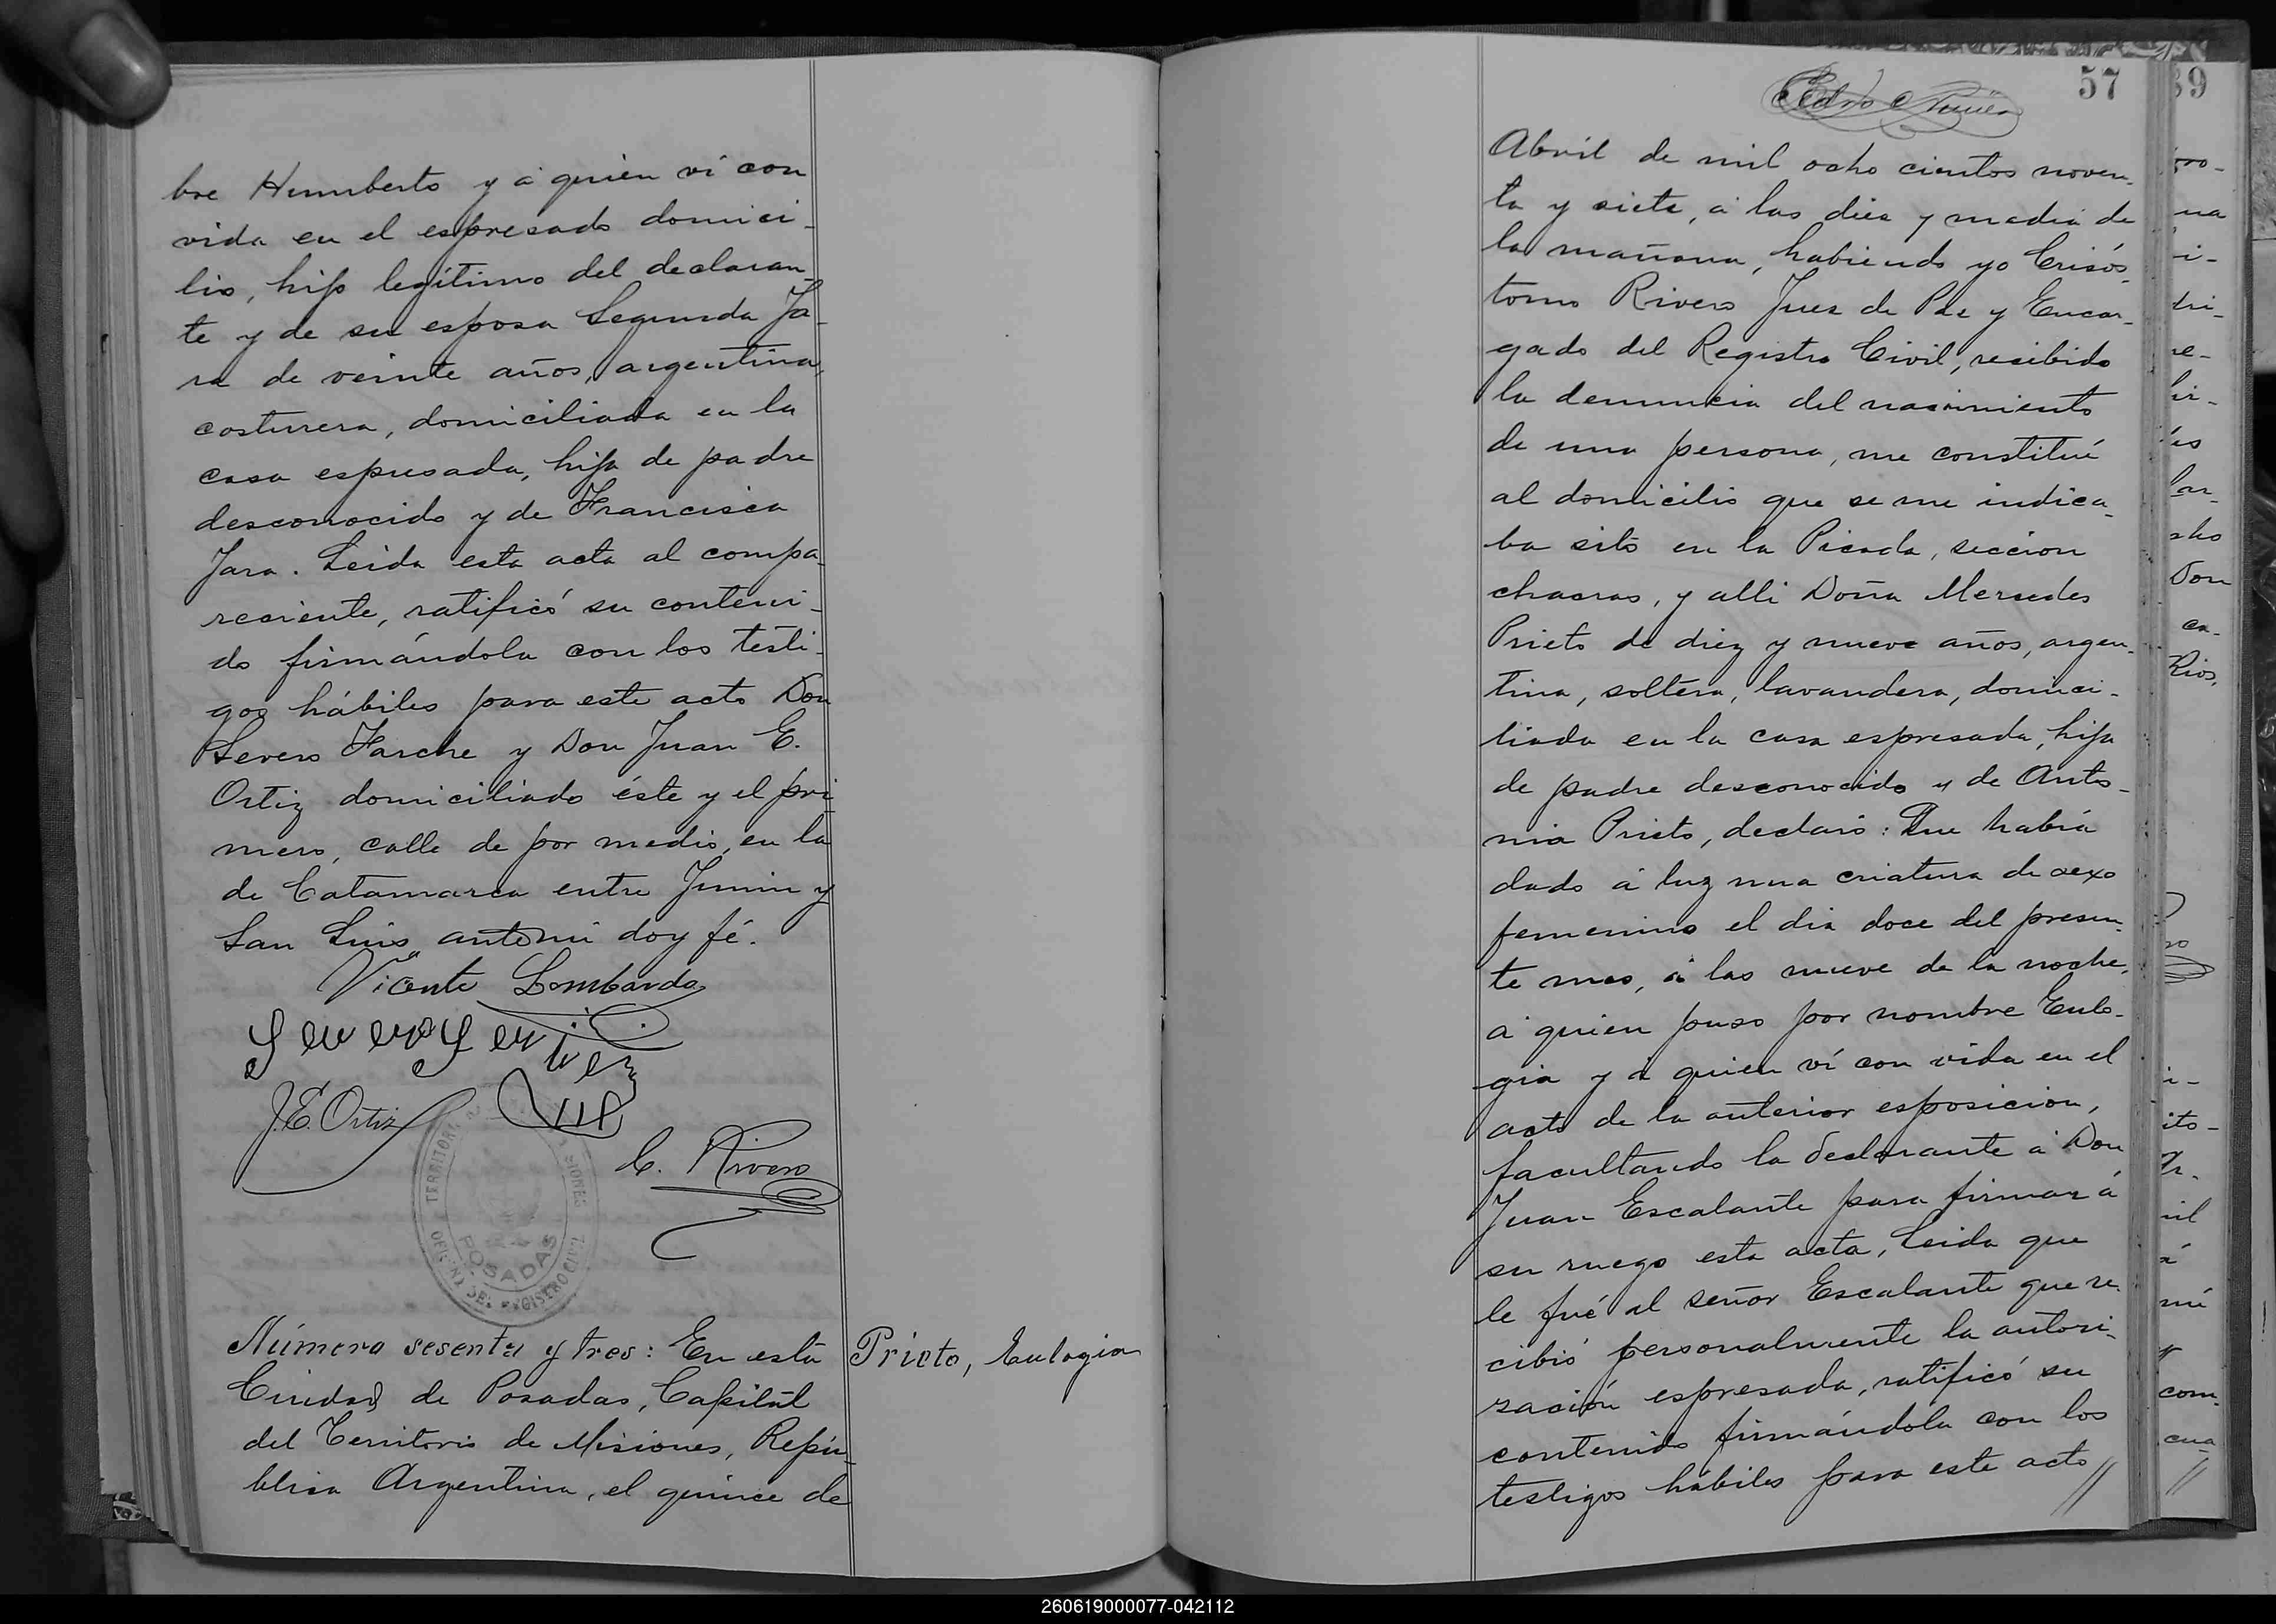 bre Humberto y á quien ví con
vida en el espresado domici-
lio, hijo legítimo del declaran-
te y de su esposa Segunda Ja-
ra de veinte años, argentina,
costurera, domiciliada en la
casa espresada, hija de padre
desconocido y de Francisca
Jara. Leida esta acta al compa-
reciente, ratificó su conteni-
do firmándola con los testi-
gos hábiles para este acto Don
Severo y Don Juan E.
Ortiz domiciliado éste y el pri-
mero, calle de por medio, en la
de Catamarca entre Junin y
San Luis, antemi doy fé.
Vicente Lombardo
Severo
J.E. Ortiz
C. Rivero
TERRITORIO SIONES
POSADAS
REGISTRO CIVIL
Número sesenta y tres: En esta
Ciudad de Posadas, Capital
del Territorio de Misiones, Repú-
blica Argentina, el quince de
Prieto, Eulogia
57
Pedro
Abril de mil ocho cientos noven-
ta y siete, á las diez y media de
la mañana, habiendo yo Crisós-
tomo Rivero Juez de Paz y Encar-
gado del Registro Civil, recibido
la denuncia del nacimiento
de una persona, me constituí
al domicilio que se me indica-
ba sito en la Picada, seccion
chacras, y alli Doña Mercedes
Prieto de diez y nueve años, argen-
tina, soltera, lavandera, domici-
liada en la casa espresada, hija
de padre desconocido y de Anto-
nia Prieto, declaró: Que habia
dado á luz una criatura de sexo
femenino el dia doce del presen-
te mes, á las nueve de la noche,
á quien puso por nombre Eulo-
gia y á quien ví con vida en el
acto de la anterior esposicion,
facultando la declarante á Don
Juan Escalante para firmar á
su ruego esta acta. Leida que
le fué al señor Escalante que re-
cibió personalmente la autori-
zación espresada, ratificó su
contenido firmándola con los
testigos hábiles para este acto //
39
260619000077-042112